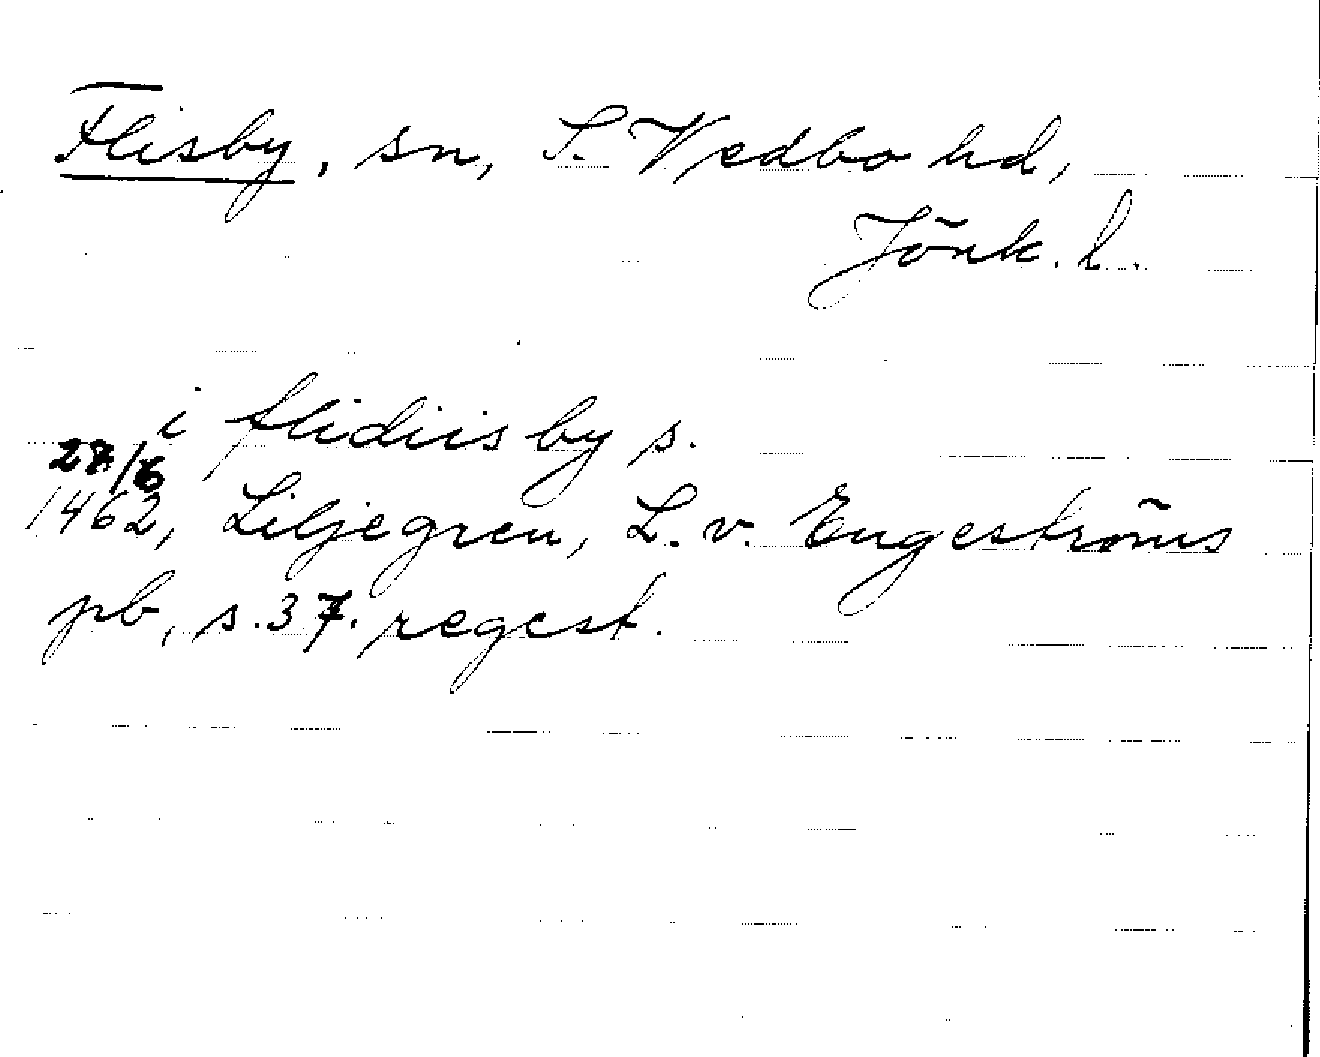 Flisby, sn, S. Vedbo hd,
Jönk. l.
i flidiisby s.
27/6
1462, Liljegren, L. v. Engeströms
pb, s. 37. regest.